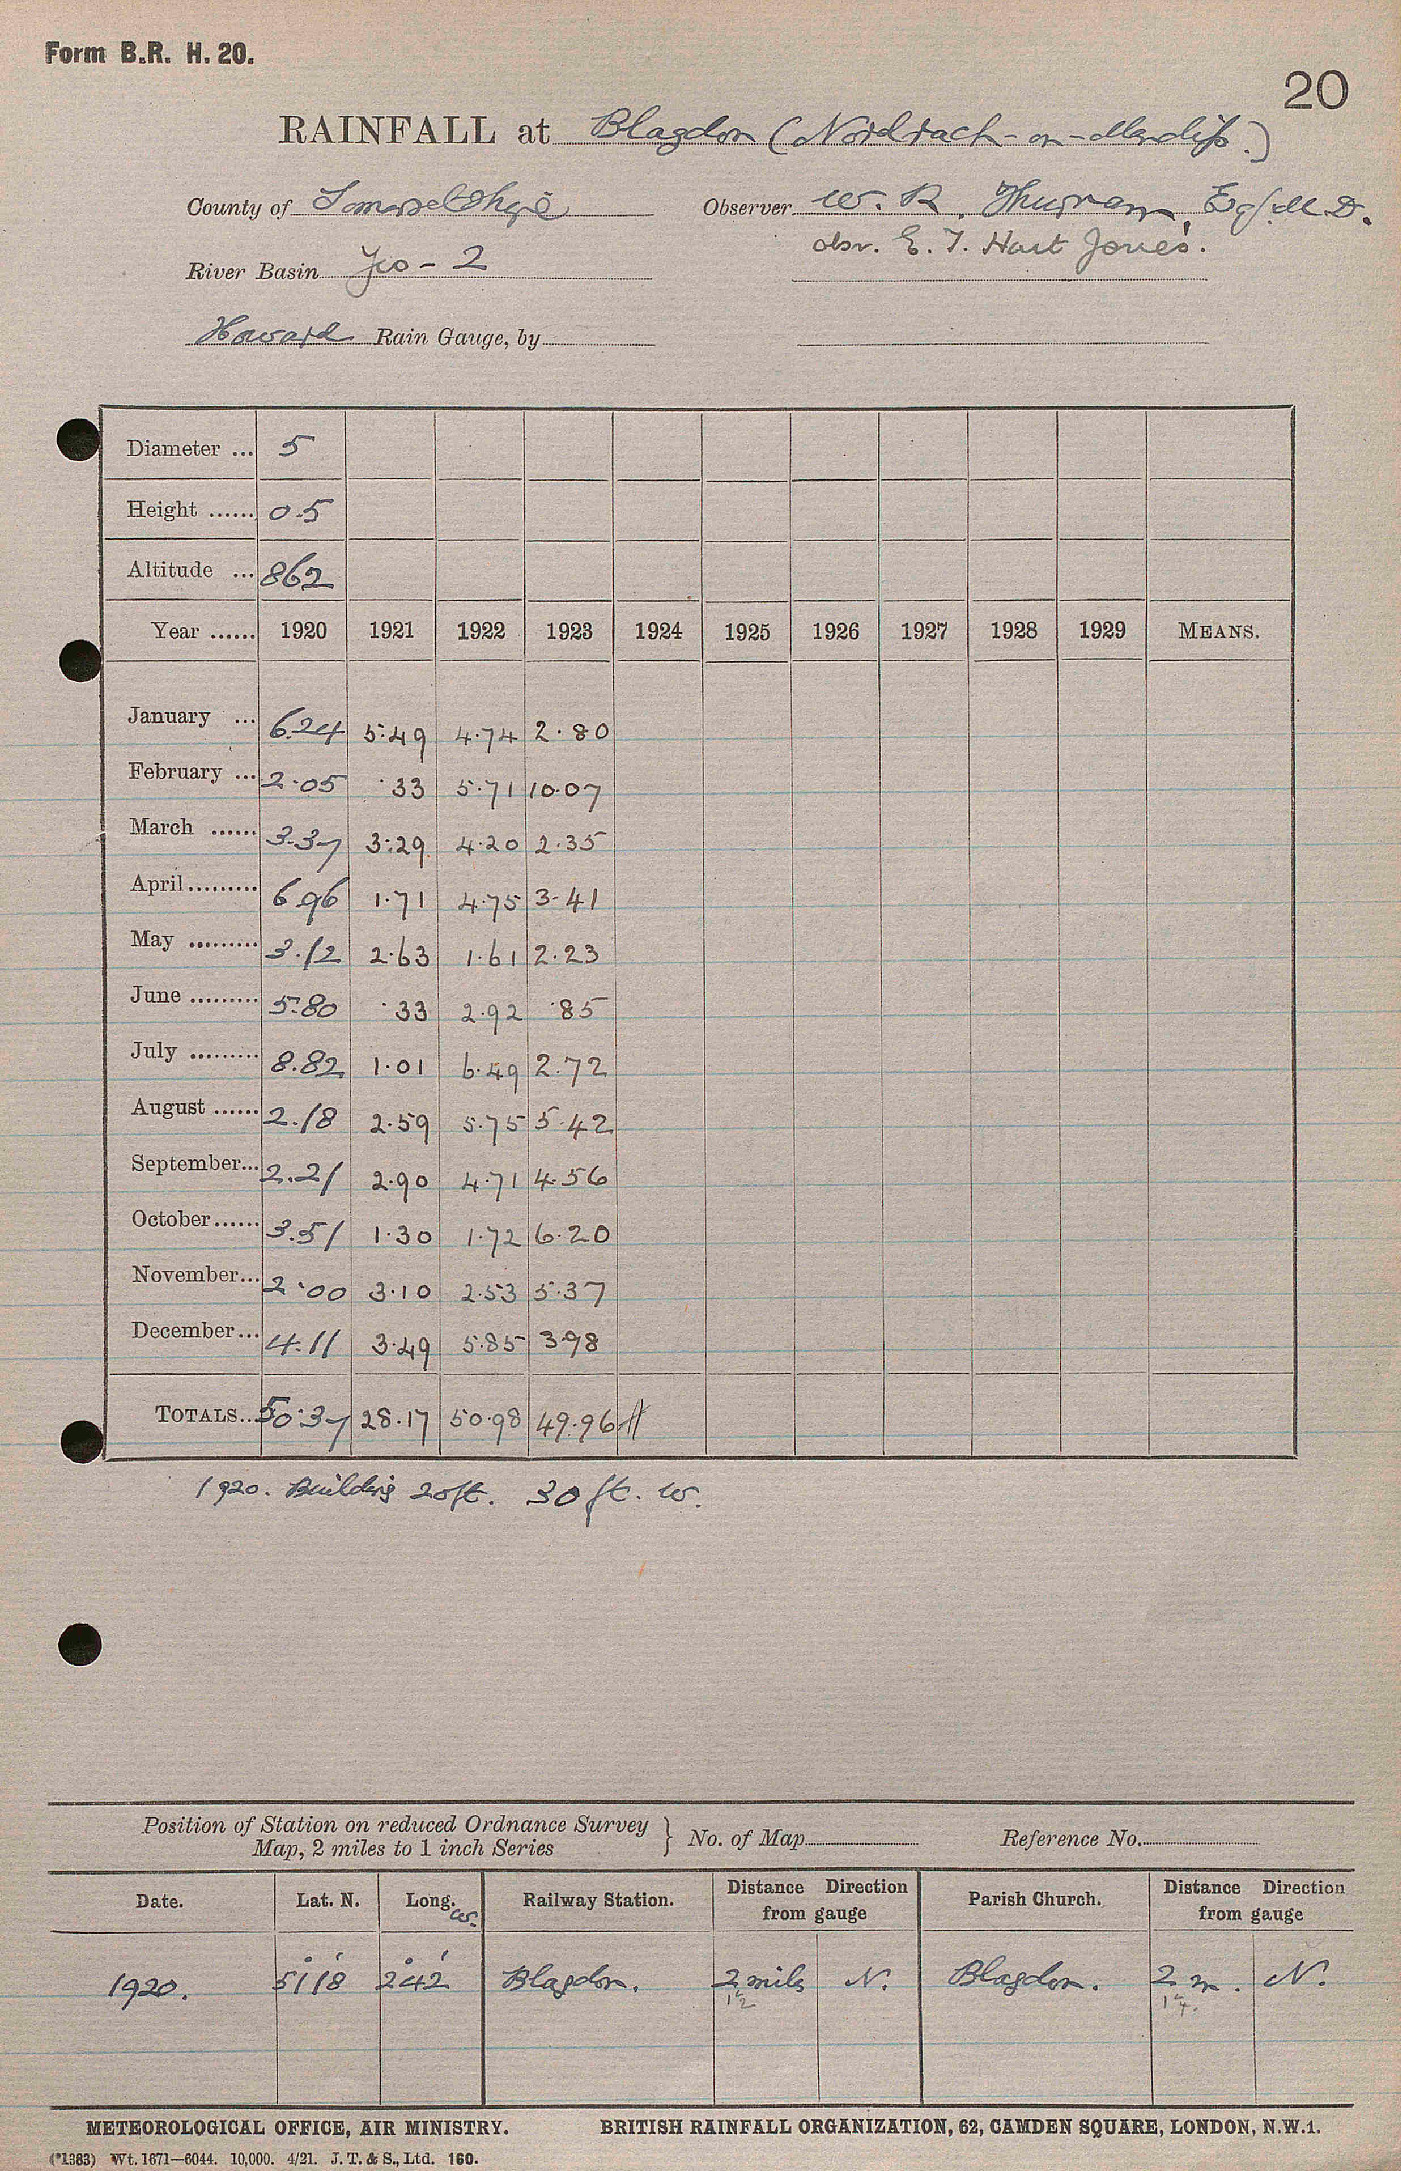 Form B.R. H. 20.
20
RAINFALL at Blagdon (Nordrach-on-Mendip.)
County of Somersetshire Observer W. R. Thurnam, Esq. M.D.
obsr. E. T. Hart Jones.
River Basin Yeo - 2
Howard Rain Gauge, by
Diameter ... 5
Height ...... 0.5
Altitude ... 862
Year ...... 1920 1921 1922 1923 1924 1925 1926 1927 1928 1929 MEANS.
January ... 6.24 5.49 4.74 2.80
February ... 2.05 .33 5.71 10.07
March ...... 3.37 3.29 4.20 2.35
April ......... 6.96 1.71 4.75 3.41
May ......... 3.12 2.63 1.61 2.23
June ......... 5.80 .33 2.92 .85
July ......... 8.82 1.01 6.49 2.72
August ...... 2.18 2.59 5.75 5.42
September... 2.21 2.90 4.71 4.56
October...... 3.51 1.30 1.72 6.20
November... 2.00 3.10 2.53 5.37
December... 4.11 3.49 5.85 3.98
TOTALS... 50.37 28.17 50.98 49.96 //
1920. Building 20ft. 30 ft. W.
Position of Station on reduced Ordnance Survey
Map, 2 miles to 1 inch Series } No. of Map Reference No.
Date. Lat. N. Long. W. Railway Station. Distance Direction from gauge Parish Church. Distance Direction from gauge
1920. 51° 18' 2° 42' Blagdon. 2 miles N. Blagdon. 2 m. N.
1½ 1¼.
METEOROLOGICAL OFFICE, AIR MINISTRY. BRITISH RAINFALL ORGANIZATION, 62, CAMDEN SQUARE, LONDON, N.W.1.
(*1383) Wt. 1671—6044. 10,000. 4/21. J. T. & S., Ltd. 160.